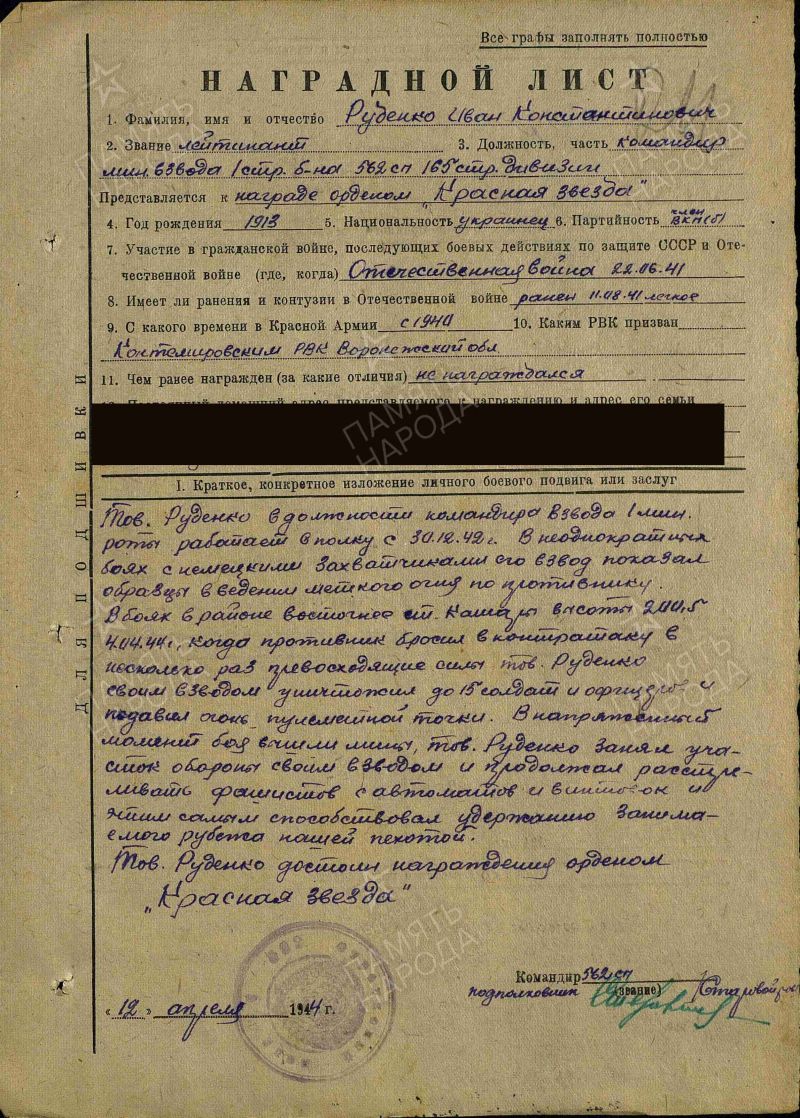 Все графы заполнять полностью
НАГРАДНОЙ ЛИСТ
1. Фамилия, имя и отчество Руденко Иван Константинович
2. Звание лейтинант 3. Должность, часть командир
мин. взвода 1 стр. б-на 562 сп 165 стр. дивизии
Представляется к награде орденом „Красная звезда"
4. Год рождения 1913 5. Национальность украинец 6. Партийность член ВКП(б)
7. Участие в гражданской войне, последующих боевых действиях по защите СССР и Оте-
чественной войне (где, когда) Отечественная война 22.06.41
8. Имеет ли ранения и контузии в Отечественной войне ранен 11.08.41 легкое
9. С какого времени в Красной Армии с 1940 10. Каким РВК призван
Контемировским РВК Воронежской обл
11. Чем ранее награжден (за какие отличия) не награждался
адрес представляемого к награждению и адрес его семьи
I. Краткое, конкретное изложение личного боевого подвига или заслуг
Тов. Руденко в должности командира взвода 1 мин.
роты работает в полку с 30.12.42 г. В неоднократных
боях с немецкими захватчиками его взвод показал
образцы в ведении меткого огня по противнику.
В боях в районе восточнее ст. Кашары высоты 200,5
4.04.44 г, когда противник бросил в контратаку в
несколько раз превосходящие силы тов. Руденко
своим взводом уничтожил до 15 солдат и офицеров и
подавил огонь пулеметной точки. В напряженный
момент боя вышли мины, тов. Руденко занял уча-
сток обороны своим взводом и продолжал расстре-
ливать фашистов с автоматов и винтовок и
этим самым способствовал удержанию занима-
емого рубежа нашей пехотой.
Тов. Руденко достоин награждения орденом
„Красная звезда"
Командир 562 сп
подполковник (звание)
«12» апреля 1944 г.
ДЛЯ ПОДШИВКИ
ПАМЯТЬ НАРОДА